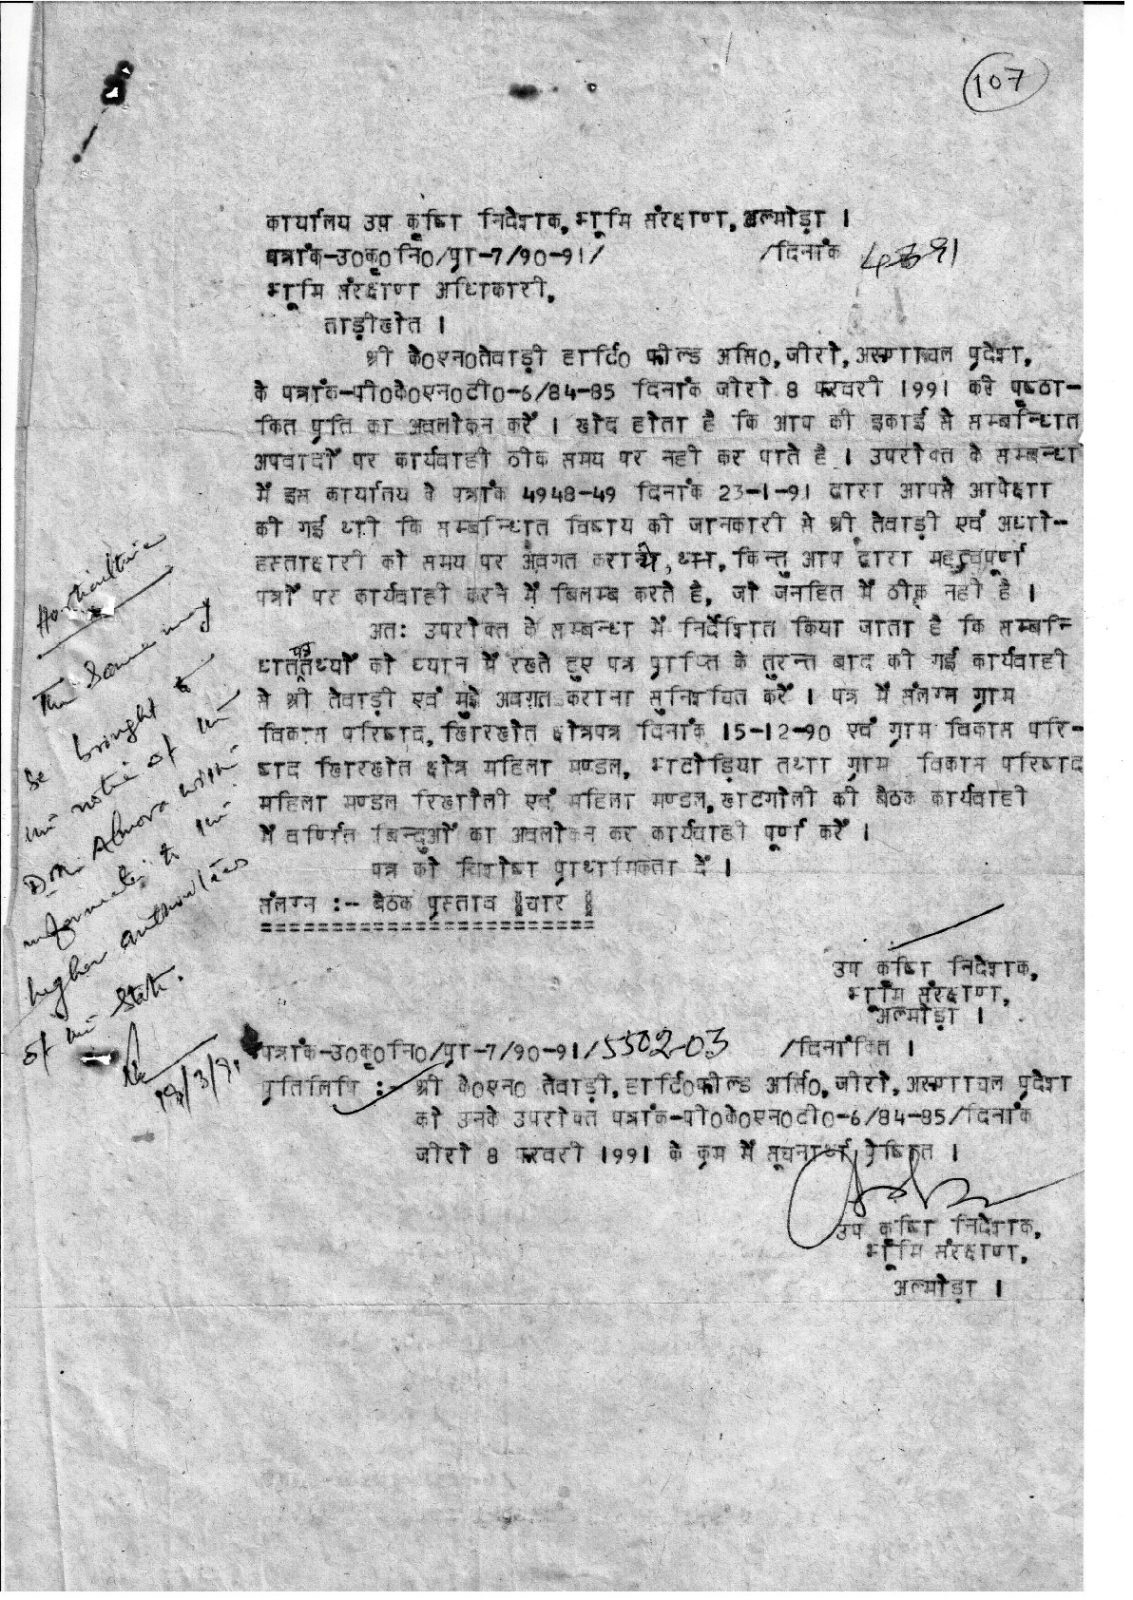 107
कार्यालय उप कृषि निदेशक, भूमि संरक्षण, अल्मोड़ा ।
पत्रांक-उ०कृ०नि०/प्रा-7/90-91/ /दिनांक 4-3-91
भूमि संरक्षण अधिकारी,
ताड़ीखेत ।
श्री के०एन०तेवाड़ी हार्टि० फील्ड असि०, जीरो, अरूणाचल प्रदेश,
के पत्रांक-पी०के०एन०टी०-6/84-85 दिनांक जीरो 8 फरवरी 1991 की पृष्ठा-
कित प्रति का अवलोकन करें । खेद होता है कि आप की इकाई से सम्बन्धित
अपवादों पर कार्यवाही ठीक समय पर नही कर पाते है । उपरोक्त के सम्बन्ध
में इस कार्यालय के पत्रांक 4948-49 दिनांक 23-1-91 द्वारा आपसे अपेक्षा
की गई थी कि सम्बन्धित विषय की जानकारी से श्री तेवाड़ी एवं अधो-
हस्ताक्षरी को समय पर अवगत कराये, किन्तु आप द्वारा महत्वपूर्ण
पत्रों पर कार्यवाही करने में बिलम्ब करते है, जो जनहित में ठीक नही है ।
अतः उपरोक्त के सम्बन्ध में निर्देशित किया जाता है कि सम्बन्धि
त पत्र तथ्यों को ध्यान में रखते हुए पत्र प्राप्ति के तुरन्त बाद की गई कार्यवाही
से श्री तेवाड़ी एवं मुझे अवगत कराना सुनिश्चित करें । पत्र में संलग्न ग्राम
विकास परिषद, खिरखेत क्षेत्रपत्र दिनांक 15-12-90 एवं ग्राम विकास परि-
षद खिरखेत क्षेत्र महिला मण्डल, भटोड़िया तथा ग्राम विकास परिषद
महिला मण्डल रिखोली एवं महिला मण्डल, खटगोली की बैठक कार्यवाही
में वर्णित बिन्दुओं का अवलोकन कर कार्यवाही पूर्ण करें ।
पत्र को विशेष प्राथमिकता दें ।
संलग्न :- बैठक प्रस्ताव (चार)
========================
उप कृषि निदेशक,
भूमि संरक्षण,
अल्मोड़ा ।
पत्रांक-उ०कृ०नि०/प्रा-7/90-91/5502-03 /दिनांकित ।
प्रतिलिपि :- श्री के०एन० तेवाड़ी, हार्टि०फील्ड असि०, जीरो, अरूणाचल प्रदेश
को उनके उपरोक्त पत्रांक-पी०के०एन०टी०-6/84-85/दिनांक
जीरो 8 फरवरी 1991 के क्रम में सूचनार्थ प्रेषित ।
उप कृषि निदेशक,
भूमि संरक्षण,
अल्मोड़ा ।
Horticulture
The same may
be brought to
the notice of the
D.M. Almora with
information to the
higher authorities
of the State.
19/3/91